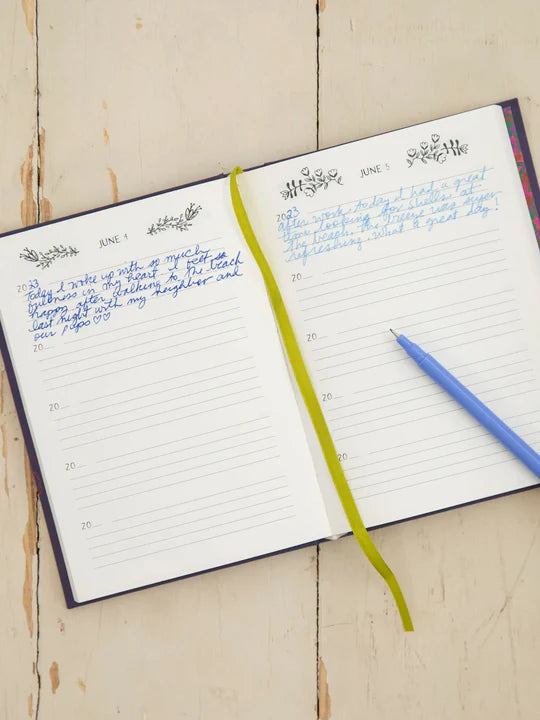 JUNE 4
2023
Today I woke up with so much
fullness in my heart. I felt so
happy after walking to the beach
last night with my neighbor and
our pups ♡♡
20__
20__
20__
20__
JUNE 5
2023
after work today I had a great
time looking for shells at
the beach, the breeze was super
refreshing. What a great day!
20__
20__
20__
20__